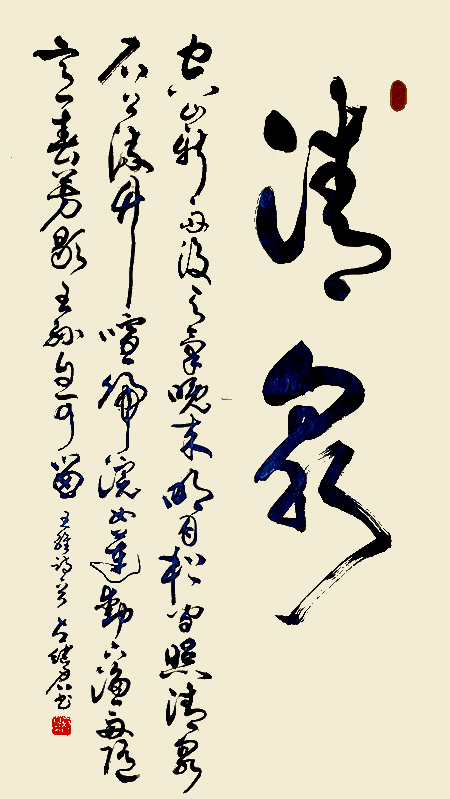 清泉
空山新雨後天氣晚来明月松間照清泉
石上流竹喧歸浣女蓮動下漁舟隨
意春芳歇王孫自可留
王維詩
书